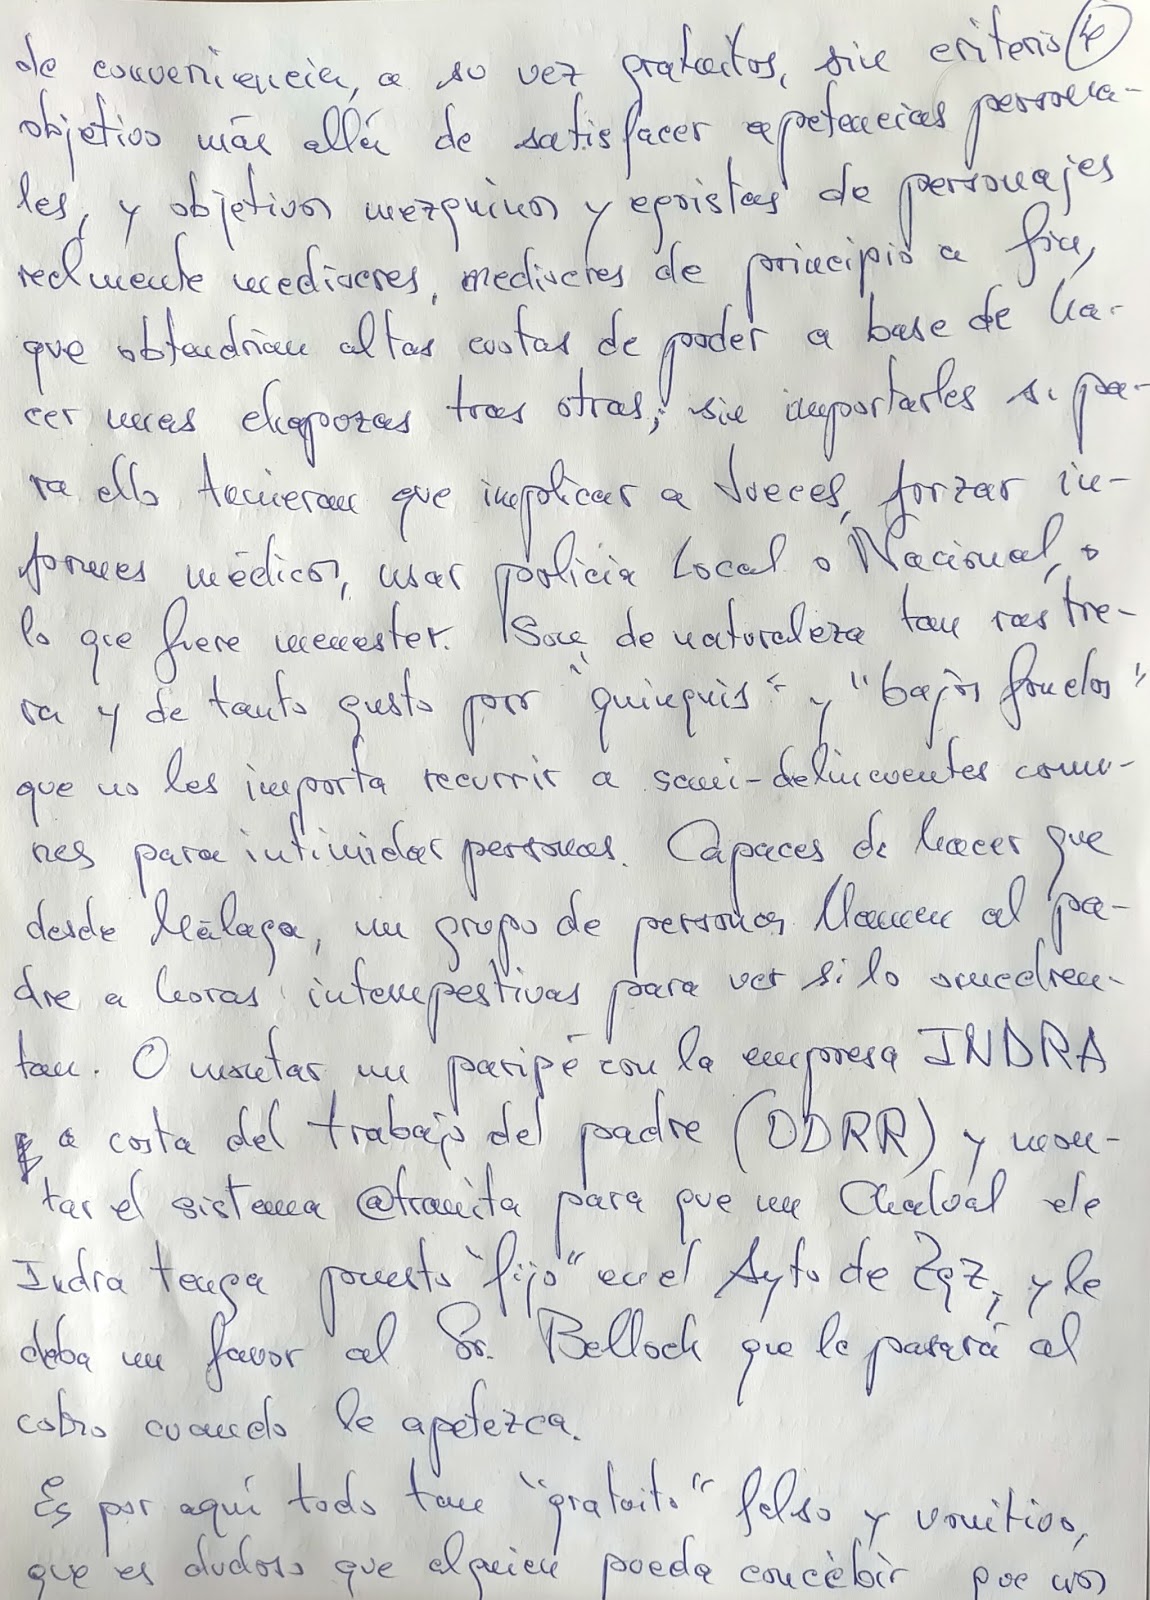 de conveniencia, a su vez gratuitos, sin criterio 4
objetivo más allá de satisfacer apetencias persona-
les, y objetivos mezquinos y egoistas de personajes
realmente mediocres, mediocres de principio a fin,
que obtendrían altas cuotas de poder a base de ha-
cer unas chapuzas tras otras, sin importarles si pa-
ra ello tuvieran que implicar a Jueces, forzar in-
formes médicos, usar policía Local o Nacional, o
lo que fuere menester. Son de naturaleza tan rastre-
ra y de tanto gusto por "quinquis" y "bajos fondos"
que no les importa recurrir a semi-delincuentes comu-
nes para intimidar personas. Capaces de hacer que
desde Málaga, un grupo de personas llamen al pa-
dre a horas intempestivas para ver si lo amedren-
tan. O montar un paripé con la empresa INDRA
a costa del trabajo del padre (DDRR) y mon-
tar el sistema @tramita para que un Chaval de
Indra tenga puesto "fijo" en el Ayto de Zgz, y le
deba un favor al Sr. Belloch que le pasará al
cobro cuando le apetezca.
Es por aquí todo tan "gratuito" falso y vomitivo,
que es dudoso que alguien pueda concebir que nos